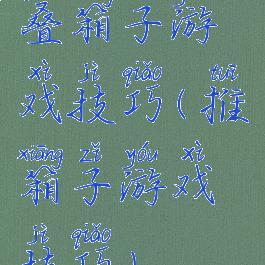 叠箱子游
xì jì qiǎo tuī
戏技巧(推
xiāng zǐ yóu xì
箱子游戏
jì qiǎo
技巧)